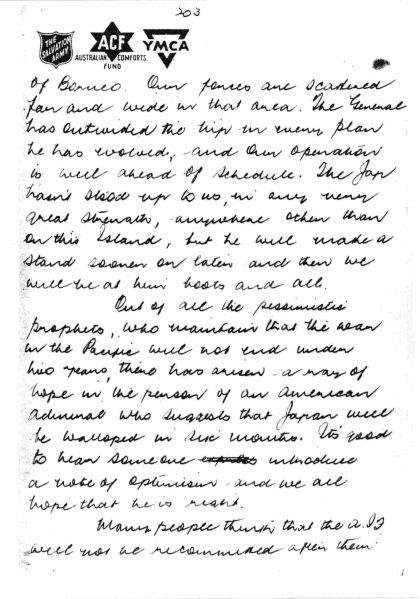 203
THE SALVATION ARMY
ACF
AUSTRALIAN COMFORTS FUND
YMCA
of Borneo. Our forces are scattered
far and wide in that area. The General
has outwitted the Nip in every plan
he has evolved, and our operation
is well ahead of schedule. The Jap
hasn't stood up to us, in any very
great strength, anywhere other than
on this Island, but he will make a
stand sooner or later and then we
will be at him boots and all.
Out of all the pessimistic
prophets, who maintain that the war
in the Pacific will not end under
two years, there has arisen a ray of
hope in the person of an American
Admiral who suggests that Japan will
be walloped in six months. It's good
to hear someone introduce
a note of optimism and we all
hope that he is right.
Many people think that the A.I.F
will not be recommitted after their